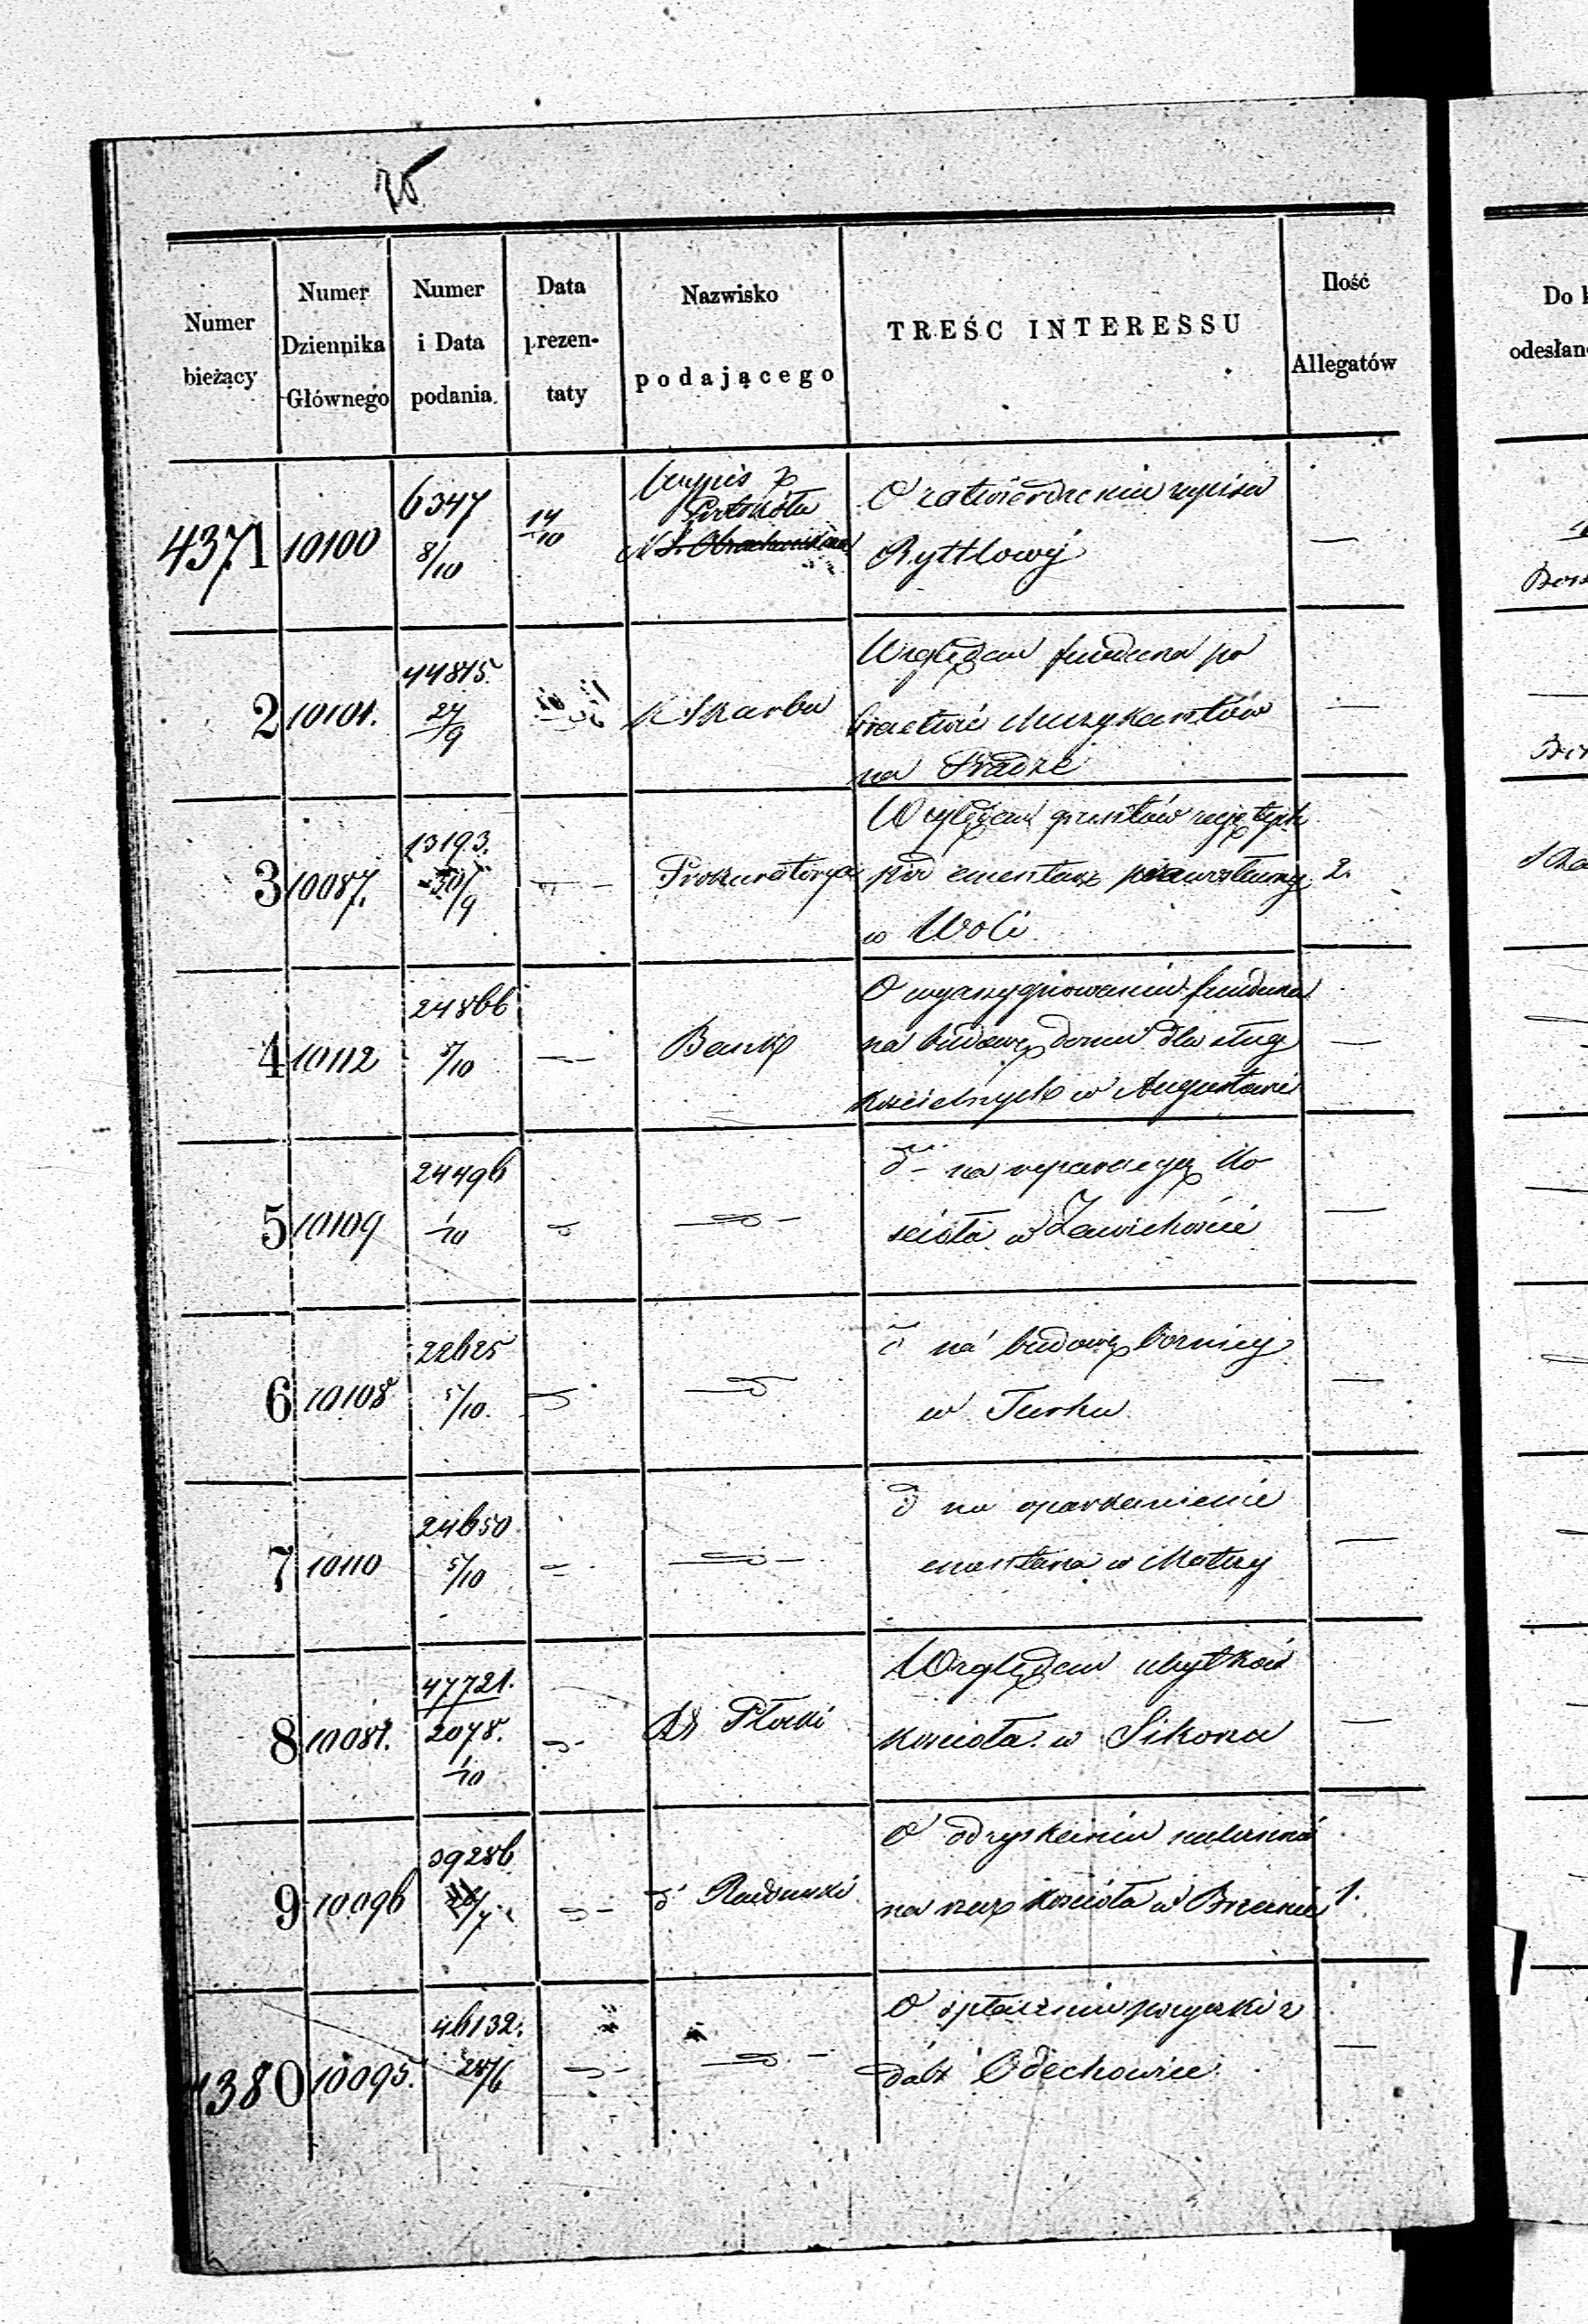 Numer bieżący
Numer Dziennika Głównego
Numer i Data podania
Data prezentaty
Nazwisko podającego
TREŚC INTERESSU
Ilość Allegatów
Do
odesłan
4371 10100 6347 8/10 14/10
Wypis z
Protokółu
O zatwierdzenie zapisu
Ryttlowéj
—
2 10101. 44815. 27/9
K Skarbu
Względem funduszu po
bractwie Muzykantów
na Pradze
—
3 10087. 13193. 30/9
Prokuratorya
Względem gruntów zajętych
pod cmentarz prawosławny
w Woli
2.
4 10112 24866 5/10
Bank
O wyassygnowanie funduszu
na budowę domu dla sług
kościelnych w Augustowie
—
5 10109 24496 1/10
na reparacyą ko
ścioła w Zawichoście
—
6 10108 22625 5/10
na budowę bożnicy
w Turku
—
7 10110 24650 5/10
na oparkanienie
cmentarza w
—
8 47721. 2078. 1/10
Płocki
Względem
kościoła w Sikorzu
—
9 10096 39286
Radomski
O odzyskanie
na rzecz kościoła w
1.
4380 10095. 46132. 28/6
O
dóbr Odechowiec
—